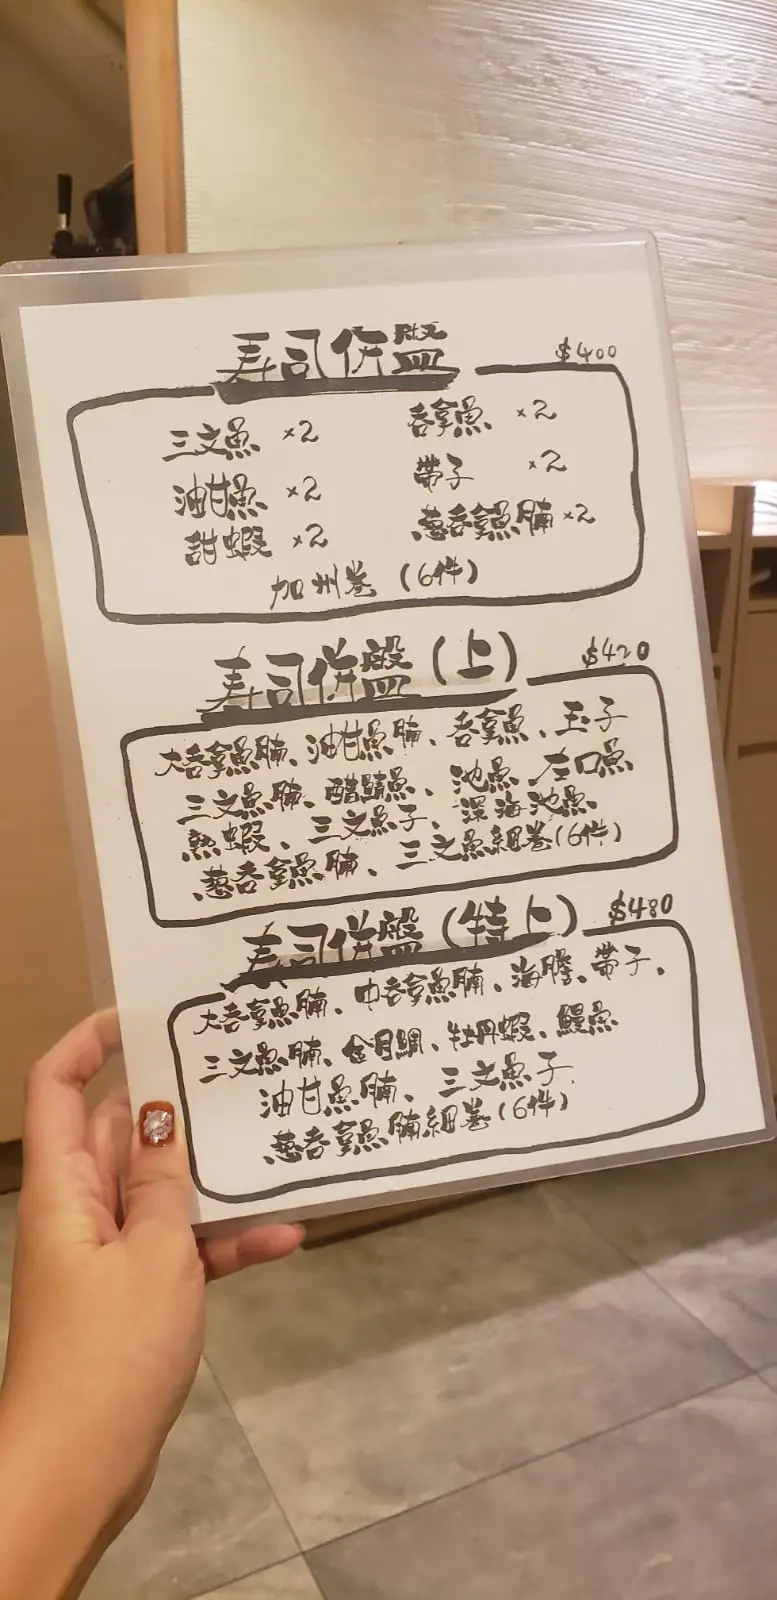 寿司併盤 $400
三文魚 ×2 吞拿魚 ×2
油甘魚 ×2 帶子 ×2
甜蝦 ×2 葱吞拿魚腩 ×2
加州卷 (6件)
寿司併盤 (上) $420
大吞拿魚腩、油甘魚腩、吞拿魚、玉子
三文魚腩、醋鯖魚、池魚、左口魚
熟蝦、三文魚子、深海池魚
葱吞拿魚腩、三文魚細卷(6件)
寿司併盤 (特上) $480
大吞拿魚腩、中吞拿魚腩、海膽、帶子、
三文魚腩、金目鯛、牡丹蝦、鰻魚
油甘魚腩、三文魚子
葱吞拿魚腩細卷 (6件)